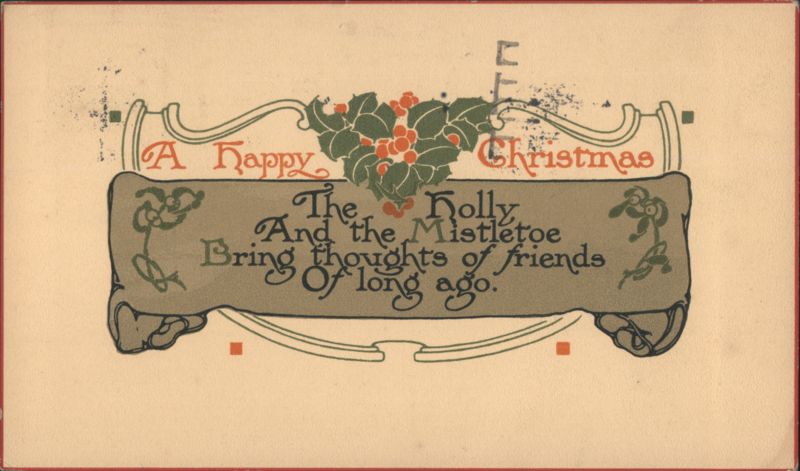 A Happy Christmas
The Holly
And the Mistletoe
Bring thoughts of friends
Of long ago.